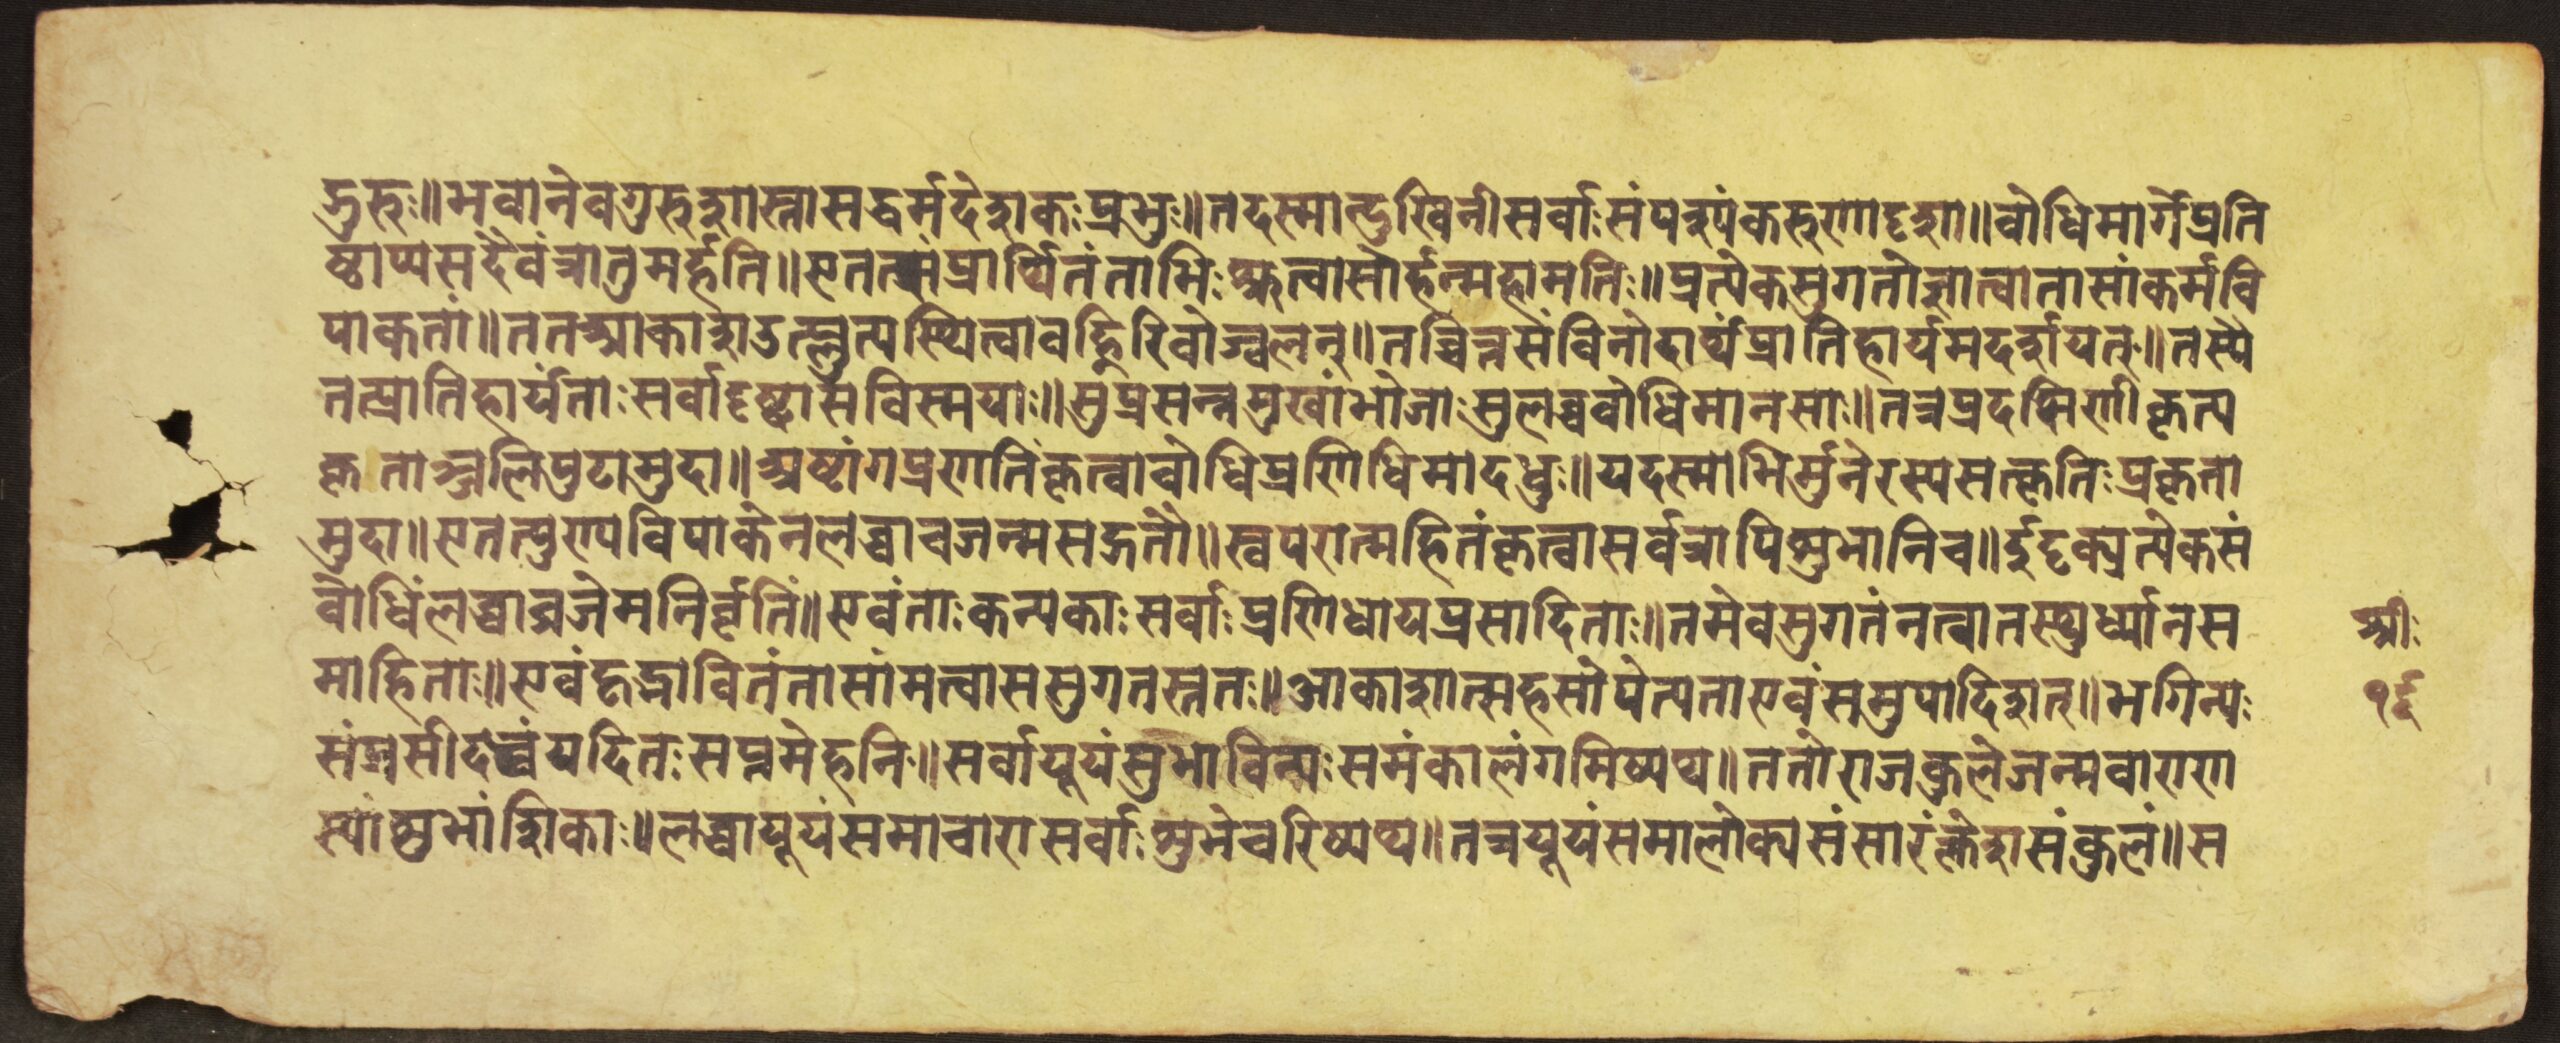 द्गुरुः॥भवानेवगुरुशास्तासद्धर्मदेशकःप्रभुः॥तदस्मान्दुखिनीसर्वाःसंपश्यंकरुणादृशा॥वोधिमार्गेप्रति
ष्ठाप्यसदैवंत्रातुमर्हति॥एतत्संप्रार्थितंताभिःश्रुत्वासोर्हन्महामतिः॥प्रत्येकसुगतोज्ञात्वातासांकर्मवि
पाकतां॥ततआकाशउत्प्लुत्यस्थित्वावह्निरिवोज्वलन्॥तच्चित्तसंविनोदार्थंप्रातिहार्यमदर्शयत्॥तस्यै
तत्प्रातिहार्यंताःसर्वादृष्ट्वासविस्मयाः॥सुप्रसन्नमुखांभोजाःसुलब्धवोधिमानसाः॥तत्रप्रदक्षिणीकृत्य
कृताञ्जलिपुटामुदा॥अष्टांगप्रणतिंकृत्वावोधिप्रणिधिमादधुः॥यदस्माभिर्मुनेरस्यसत्कृतिःप्रकृता
मुदा॥एतत्पुण्यविपाकेनलब्धाचजन्मसद्गतौ॥स्वपरात्महितंकृत्वासर्वत्रापिशुभानिच॥ईदृक्प्रत्येकसं
वोधिंलब्ध्वाव्रजेमनिर्वृतिं॥एवंताःकन्यकाःसर्वाःप्रणिधायप्रसादिताः॥तमेवसुगतंनत्वातस्थुर्ध्यानस
माहिताः॥एवंहृद्भावितंतासांमत्वाससुगतस्ततः॥आकाशात्सहसोपेत्यताएवंसमुपादिशत्॥भगिन्यः
संप्रसीदध्वंयदितःसप्तमेहनि॥सर्वायूयंसुभाविन्यःसमंकालंगमिष्यथ॥ततोराजकुलेजन्मवाराण
स्यांशुभांशिकाः॥लब्ध्वायूयंसमाचारासर्वाःशुभेचरिष्यथ॥तत्रयूयंसमालोक्यसंसारंक्लेशसंकुलं॥स
श्रीः